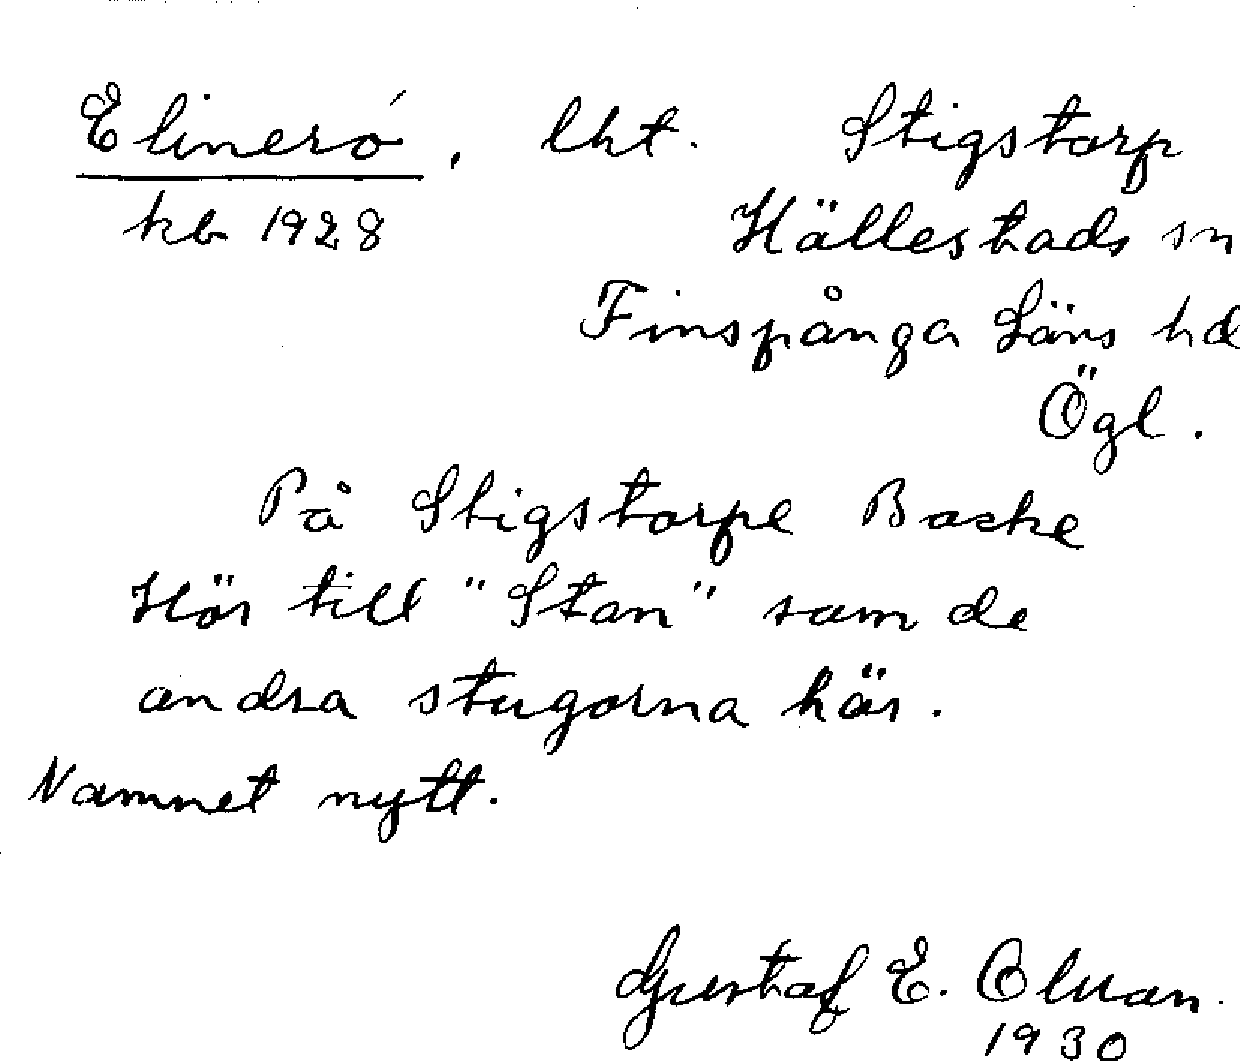 Elineró, lht. Stigstorp
kb 1928 Hällestads sn
Finspånga Läns hd
Ögl.
På Stigstorps Backe
Hör till "Stan" som de
andra stugorna här.
Namnet nytt.
Gustaf E. Olman.
1930